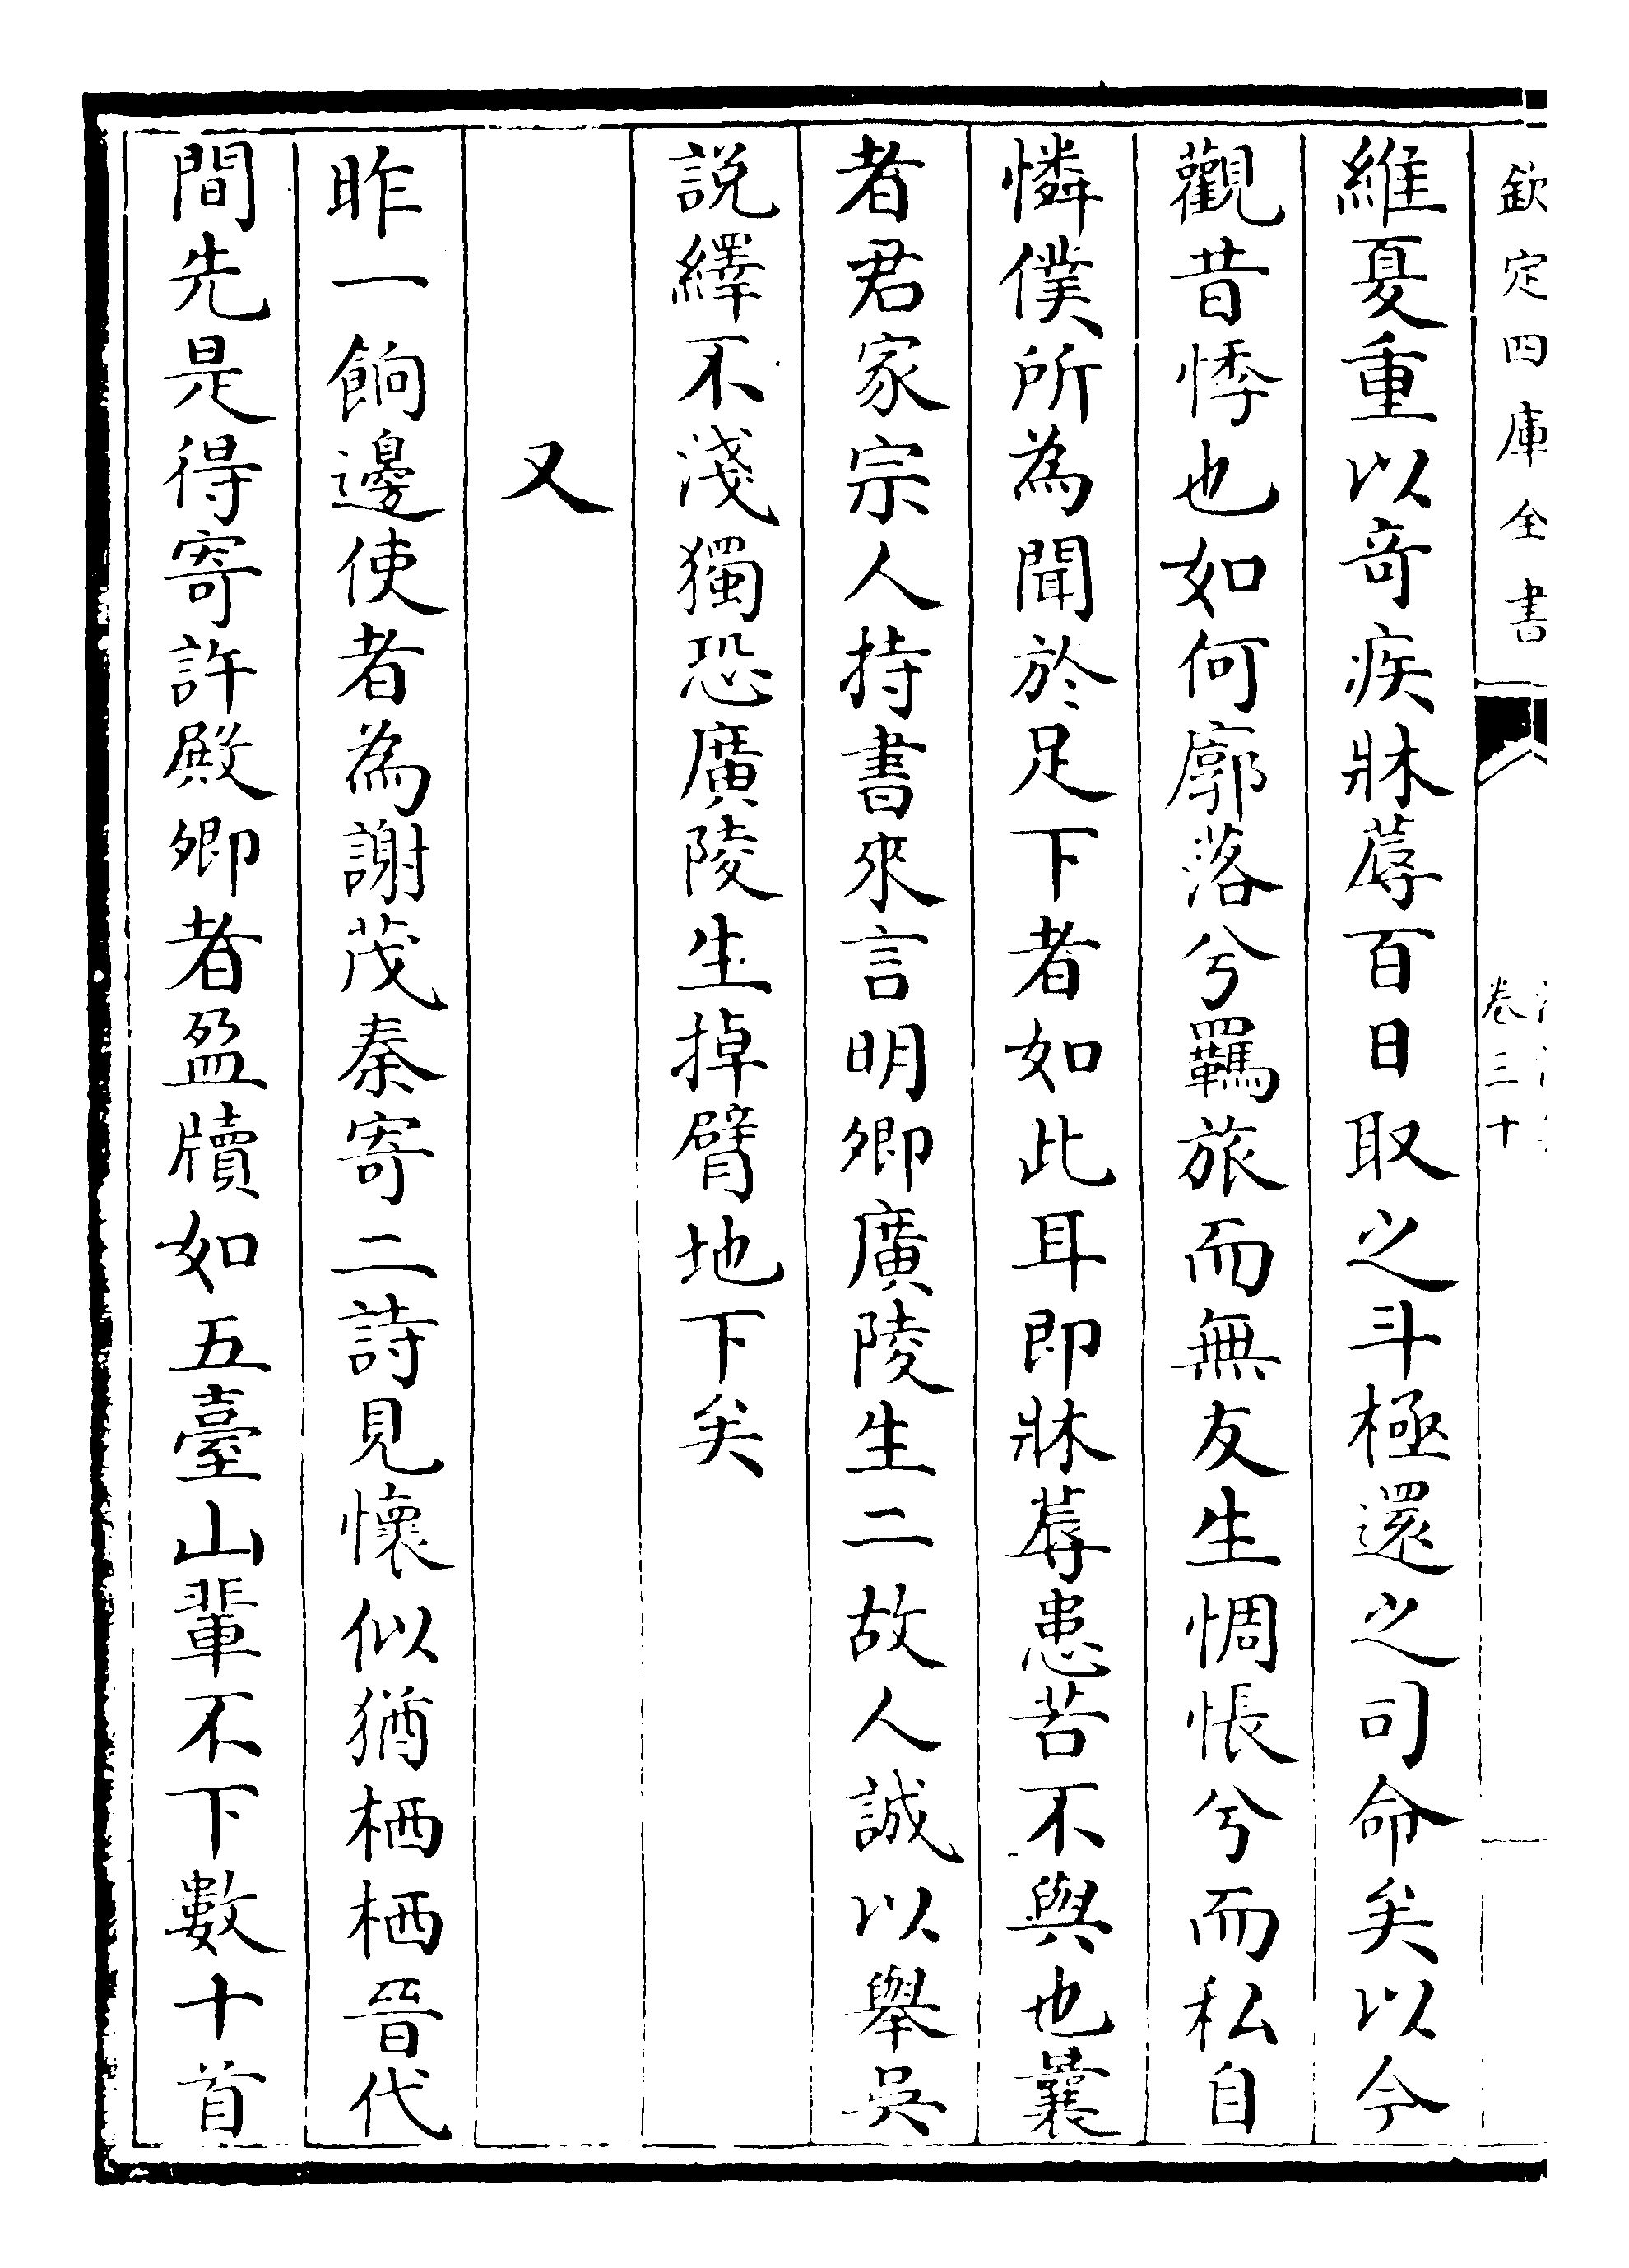 欽定四庫全書
卷三十
維憂重以奇疾牀蓐百日取之斗極還之司命矣以今
觀昔悸也如何廓落兮羈旅而無友生惆悵兮而私自
憐僕所為聞於足下者如此耳即牀蓐患苦不與也曩
者君家宗人持書來言明卿廣陵生二故人誠以舉吳
説繹不淺獨恐廣陵生掉臂地下矣
又
昨一餉邊使者為謝茂秦寄二詩見懷似猶栖栖晉代
間先是得寄許殿卿者盈牘如五臺山輩不下數十首